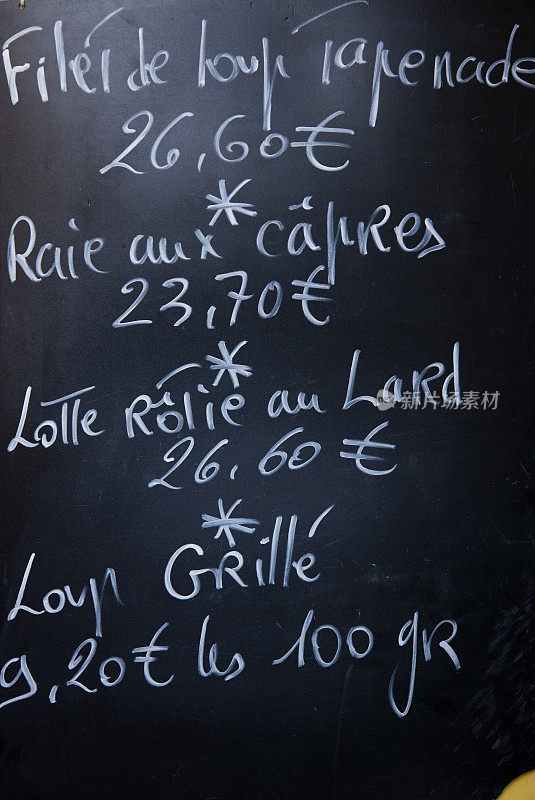 Filet de loup Tapenade
26,60€
*
Raie aux câpres
23,70€
*
Lotte rôtie au Lard
26.60€
*
Loup Grillé
9,20€ les 100 gr
iStock 图片素材